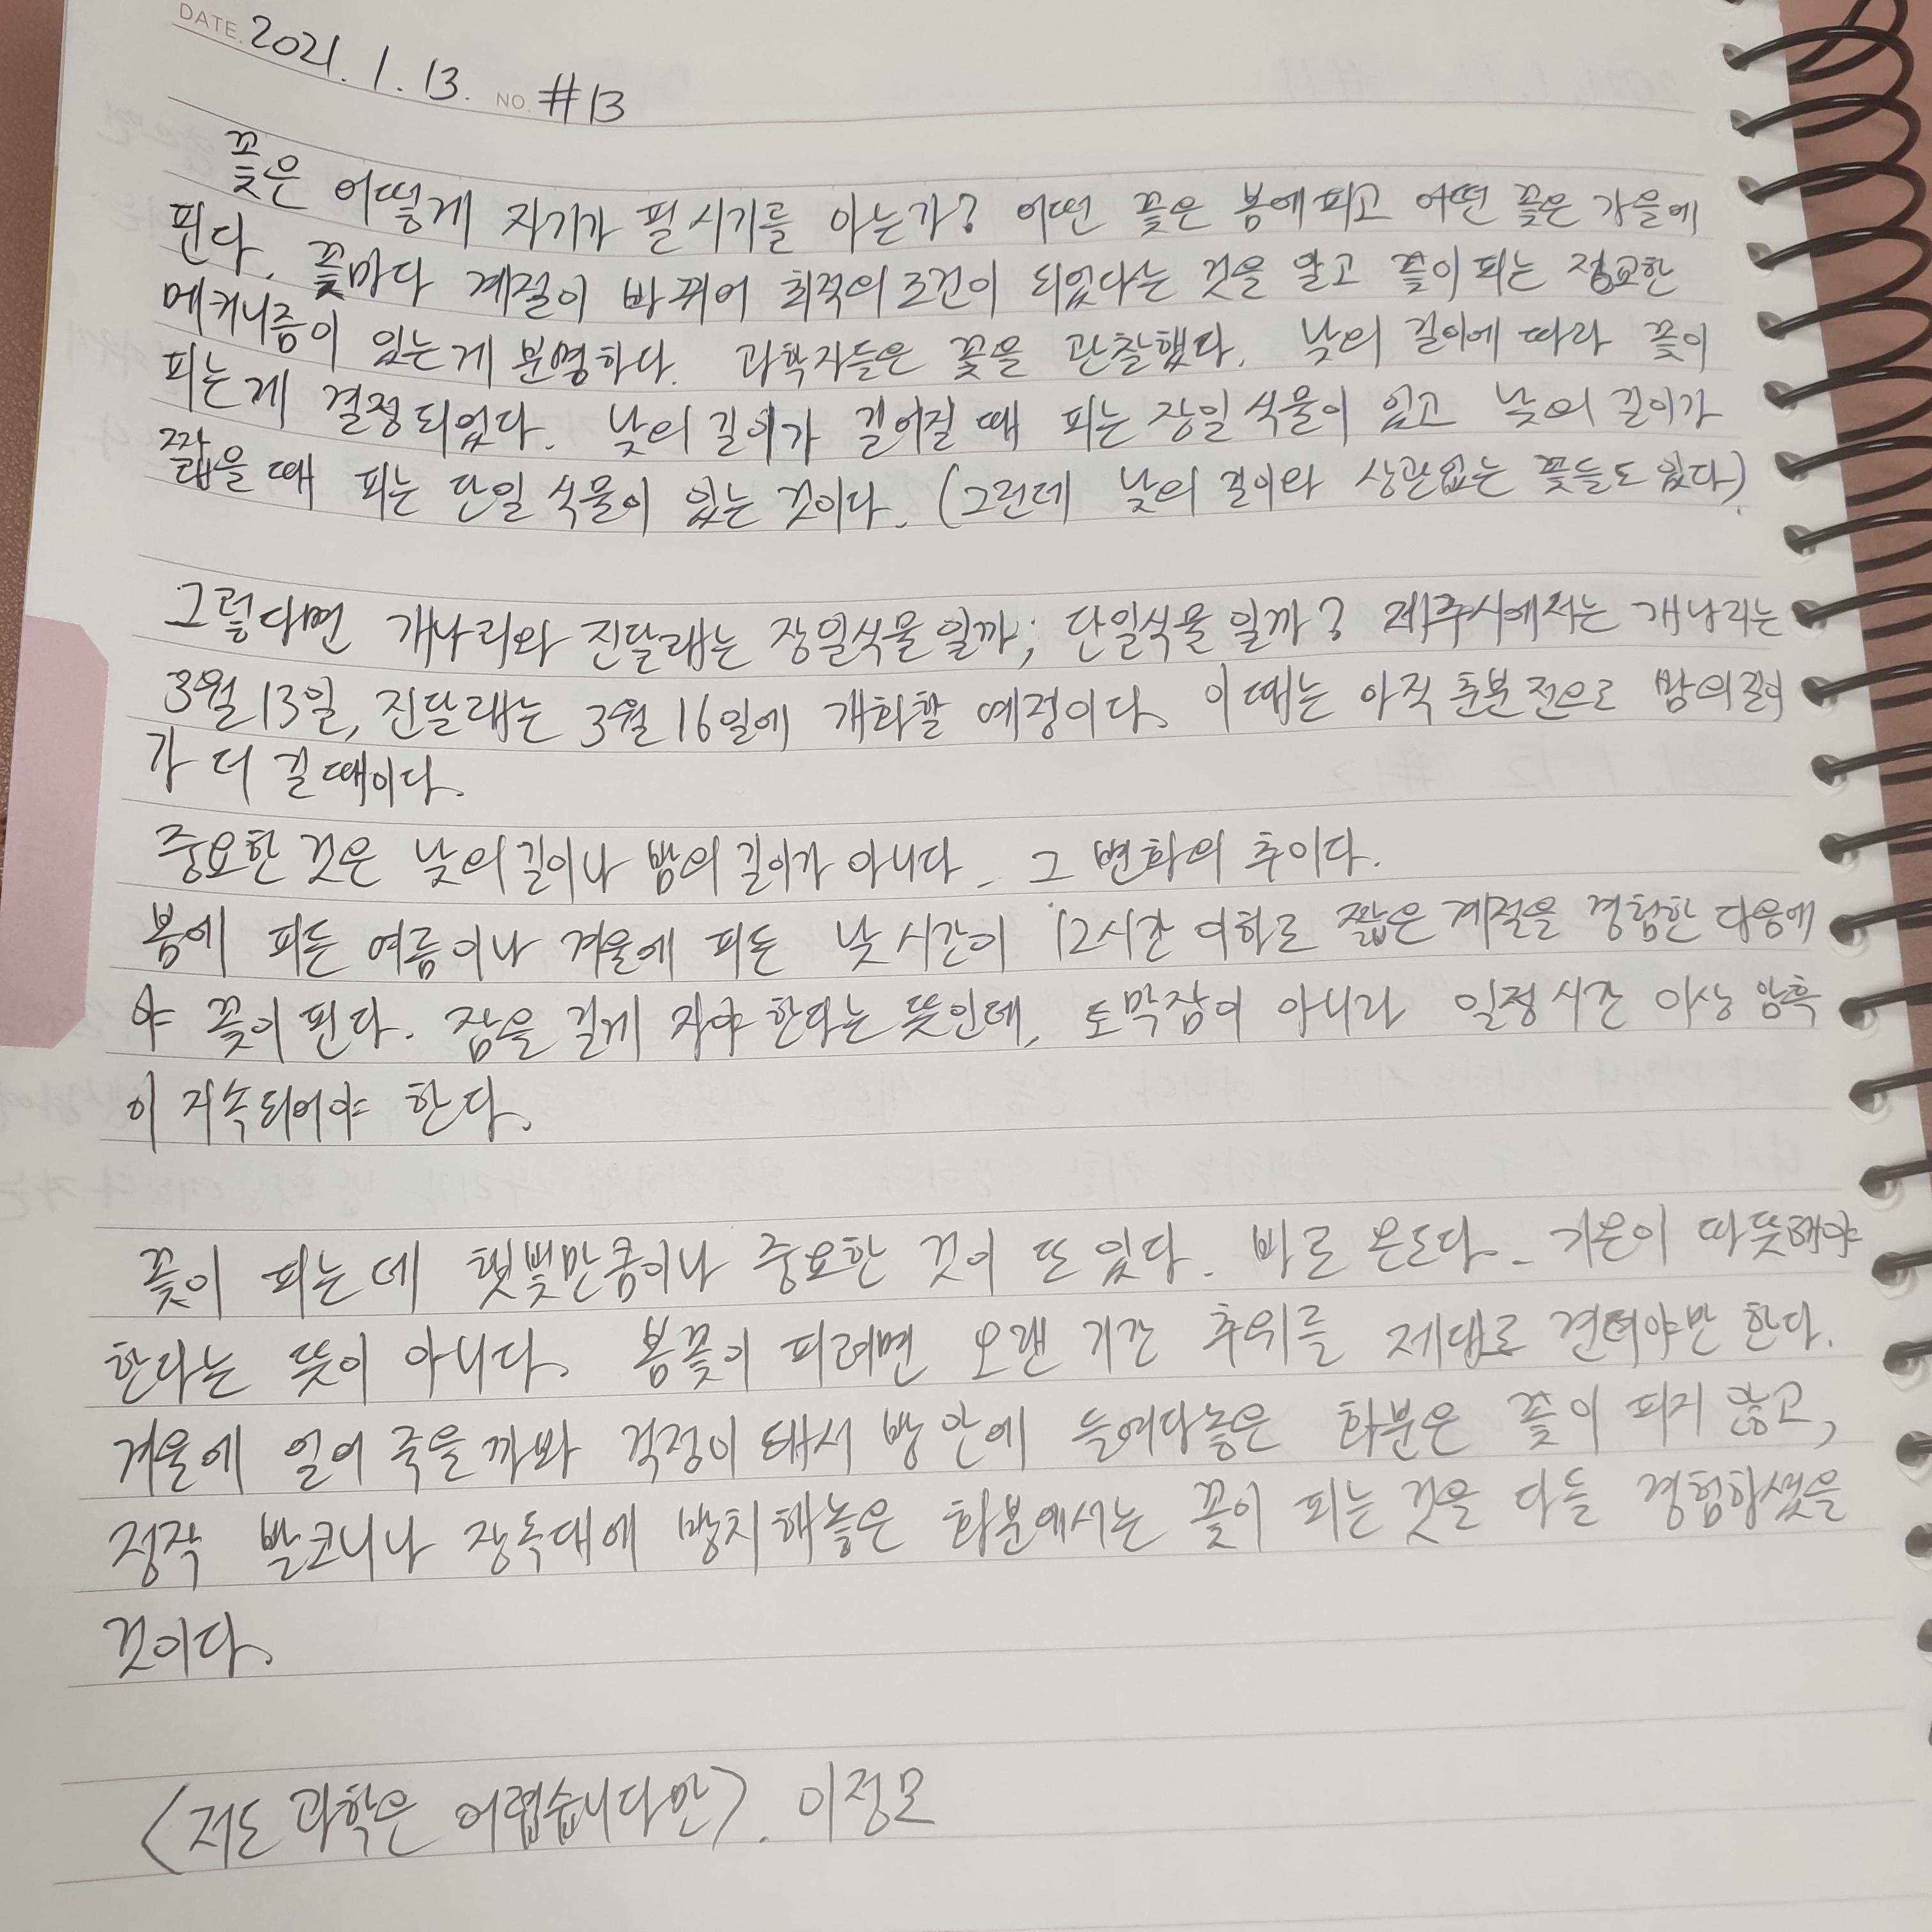 DATE. 2021. 1. 13. NO. #13
꽃은 어떻게 자기가 필 시기를 아는가? 어떤 꽃은 봄에 피고 어떤 꽃은 가을에
핀다. 꽃마다 계절이 바뀌어 최적의 조건이 되었다는 것을 알고 꽃이 피는 정교한
메커니즘이 있는게 분명하다. 과학자들은 꽃을 관찰했다. 낮의 길이에 따라 꽃이
피는게 결정되었다. 낮의 길이가 길어질 때 피는 장일 식물이 있고 낮의 길이가
짧을 때 피는 단일 식물이 있는 것이다. (그런데 낮의 길이와 상관없는 꽃들도 있다).
그렇다면 개나리와 진달래는 장일식물일까, 단일식물일까? 제주시에서는 개나리는
3월 13일, 진달래는 3월 16일에 개화할 예정이다. 이때는 아직 춘분 전으로 밤의 길이
가 더 길 때이다.
중요한 것은 낮의 길이나 밤의 길이가 아니다. 그 변화의 추이다.
봄에 피든 여름이나 겨울에 피든 낮 시간이 12시간 이하로 짧은 계절을 경험한 다음에
야 꽃이 핀다. 잠을 길게 자야 한다는 뜻인데, 토막잠이 아니라 일정 시간 이상 암흑
이 지속되어야 한다.
꽃이 피는 데 햇빛만큼이나 중요한 것이 또 있다. 바로 온도다. 기온이 따뜻해야
한다는 뜻이 아니다. 봄꽃이 피려면 오랜 기간 추위를 제대로 견뎌야만 한다.
겨울에 얼어 죽을까봐 걱정이 돼서 방 안에 들여다놓은 화분은 꽃이 피지 않고,
정작 발코니나 장독대에 방치해놓은 화분에서는 꽃이 피는 것을 다들 경험하셨을
것이다.
<저도 과학은 어렵습니다만>. 이정모